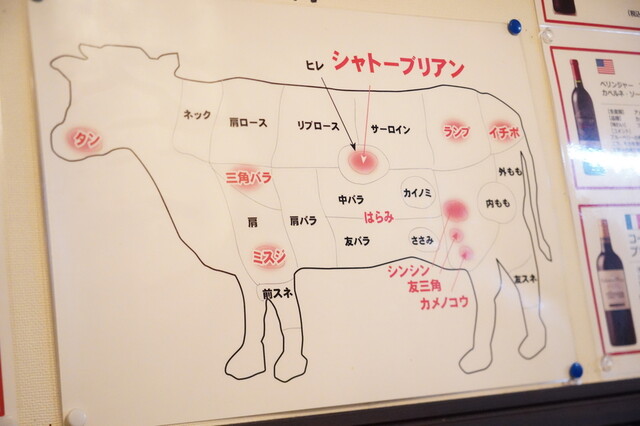 ヒレ
シャトーブリアン
ネック
肩ロース
リブロース
サーロイン
ランプ
イチボ
タン
三角バラ
中バラ
カイノミ
外もも
内もも
はらみ
肩
肩バラ
友バラ
ささみ
ミスジ
シンシン
友三角
カメノコウ
前スネ
友スネ
ベリンジャー
カベルネ・ソー